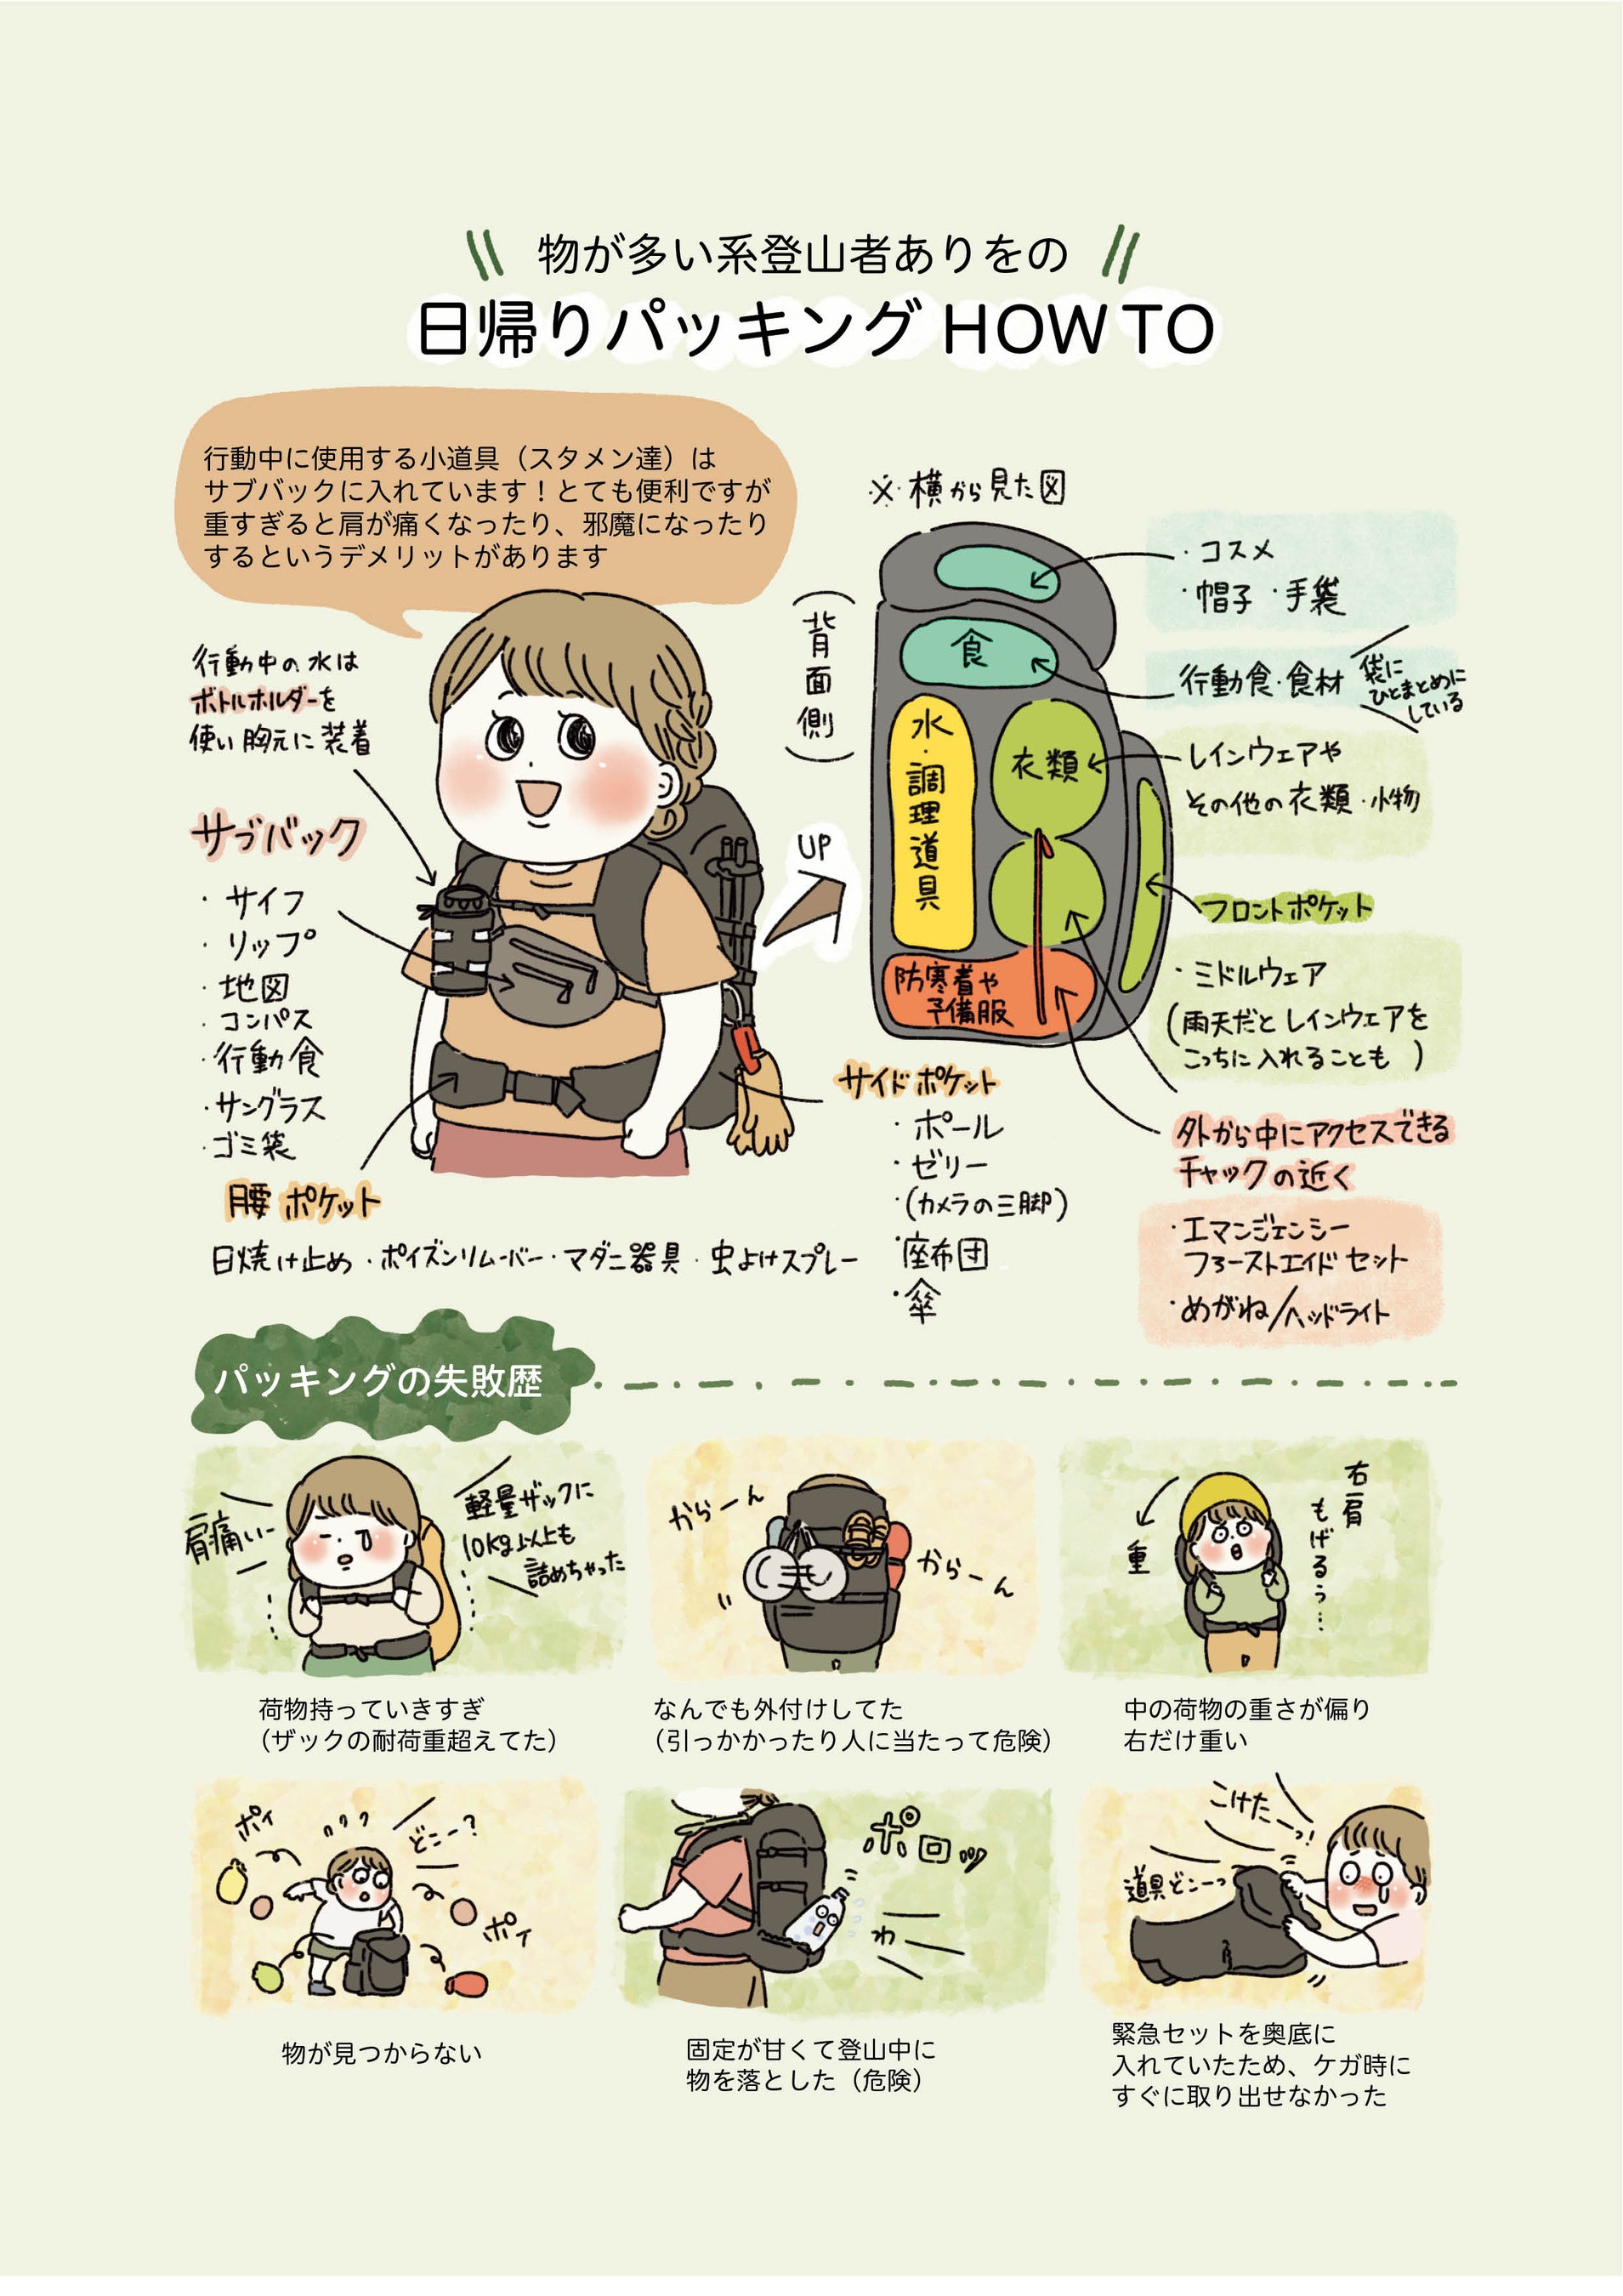 物が多い系登山者ありをの
日帰りパッキング HOW TO
行動中に使用する小道具（スタメン達）は
サブバックに入れています！とても便利ですが
重すぎると肩が痛くなったり、邪魔になったり
するというデメリットがあります
行動中の水は
ボトルホルダーを
使い胸元に装着
サブバック
・サイフ
・リップ
・地図
・コンパス
・行動食
・サングラス
・ゴミ袋
腰ポケット
日焼け止め・ポイズンリムーバー・マダニ器具・虫よけスプレー
UP
サイドポケット
・ポール
・ゼリー
・(カメラの三脚)
・座布団
・傘
※横から見た図
(背面側)
食
水・調理道具
衣類
防寒着や
予備服
・コスメ
・帽子・手袋
行動食・食材
袋に
ひとまとめに
している
レインウェアや
その他の衣類・小物
フロントポケット
・ミドルウェア
(雨天だとレインウェアを
こっちに入れることも)
外から中にアクセスできる
チャックの近く
・エマンジェンシー
ファーストエイドセット
・めがね/ヘッドライト
パッキングの失敗歴
肩痛いー
軽量ザックに
10kg以上も
詰めちゃった
荷物持っていきすぎ
（ザックの耐荷重超えてた）
からーん
からーん
なんでも外付けしてた
（引っかかったり人に当たって危険）
重
右肩
もげるぅ…
中の荷物の重さが偏り
右だけ重い
ポイ
どこー？
ポイ
物が見つからない
ポロッ
わ
固定が甘くて登山中に
物を落とした（危険）
こけたーっ！
道具どこーっ
緊急セットを奥底に
入れていたため、ケガ時に
すぐに取り出せなかった